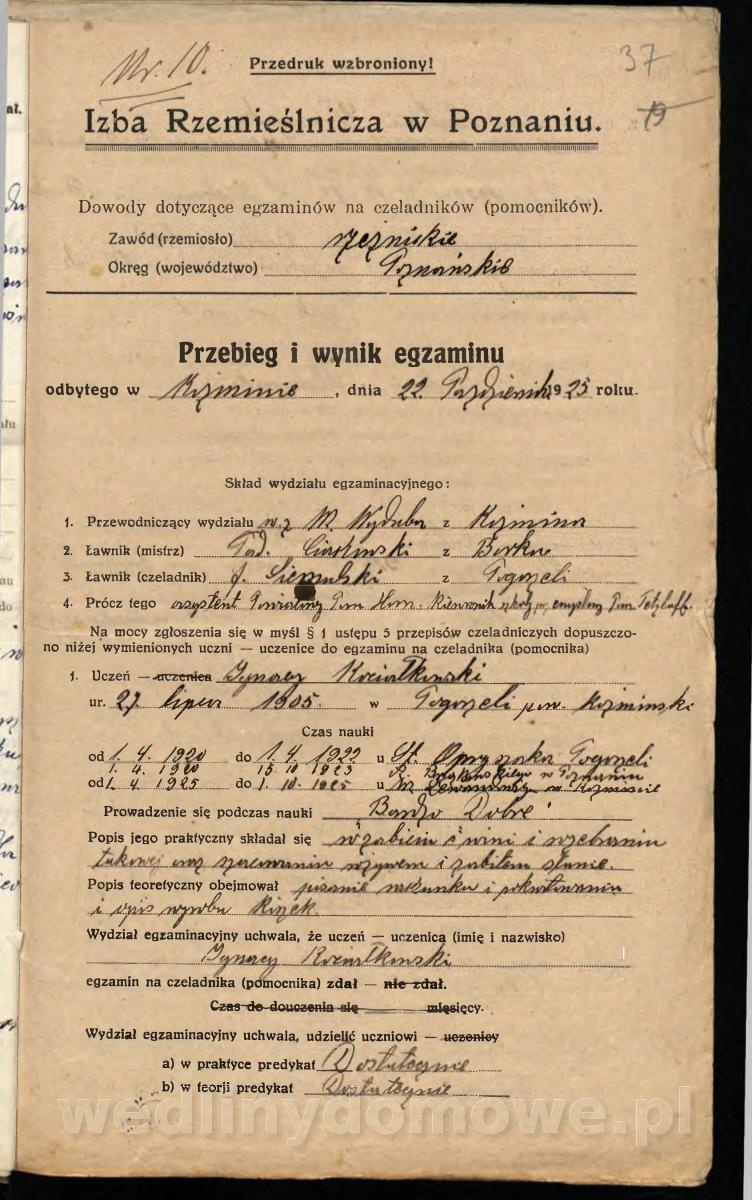 Nr. 10.
Przedruk wzbroniony!
37
19
Izba Rzemieślnicza w Poznaniu.
Dowody dotyczące egzaminów na czeladników (pomocników).
Zawód (rzemiosło) rzeźnickie
Okręg (województwo) Poznańskie
Przebieg i wynik egzaminu
odbytego w Koźminie, dnia 22. Październik 1925 roku.
Skład wydziału egzaminacyjnego:
1. Przewodniczący wydziału w.z W. Wyduba z Koźmina
2. Ławnik (mistrz) Tad. z Borku
3. Ławnik (czeladnik) J. z Pogorzeli
4. Prócz tego asystent Powiatowy Pan Kierownik szkoły
Na mocy zgłoszenia się w myśl § 1 ustępu 5 przepisów czeladniczych dopuszczo-
no niżej wymienionych uczni — uczenice do egzaminu na czeladnika (pomocnika)
1. Uczeń — uczenica Ignacy Koziałkowski
ur. 27. lipca 1905. w Pogorzeli pow. Koźmiński
Czas nauki
od 1. 4. 1920 do 1. 4. 1922 u St. Opryszaka Pogorzeli
1. 4. 1920 15 10 1923 w Poznaniu
od 1. 4 1925 do 1. 10. 1925 u w Koźminie
Prowadzenie się podczas nauki Bardzo Dobre
Popis jego praktyczny składał się w zabiciu świni i rozebraniu
takowej oraz szacowaniu w żywem i zabitem stanie.
Popis teoretyczny obejmował pisanie rachunku i pokwitowania
i opis wyrobu kiszek.
Wydział egzaminacyjny uchwala, że uczeń — uczenica (imię i nazwisko)
Ignacy Koziałkowski
egzamin na czeladnika (pomocnika) zdał — nie zdał.
Czas do douczenia się miesięcy.
Wydział egzaminacyjny uchwala, udzielić uczniowi — uczenicy
a) w praktyce predykat Dostatecznie
b) w teorji predykat Dostatecznie
wedlinydomowe.pl